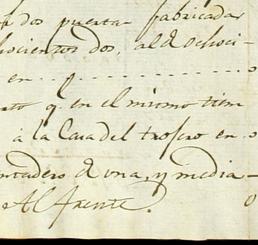 dos puertas fabricadas
ochocientos dos, al de ochoci-
en
q. en el mismo tiem
à la Casa del trosero en
de una, y media
Al frente.